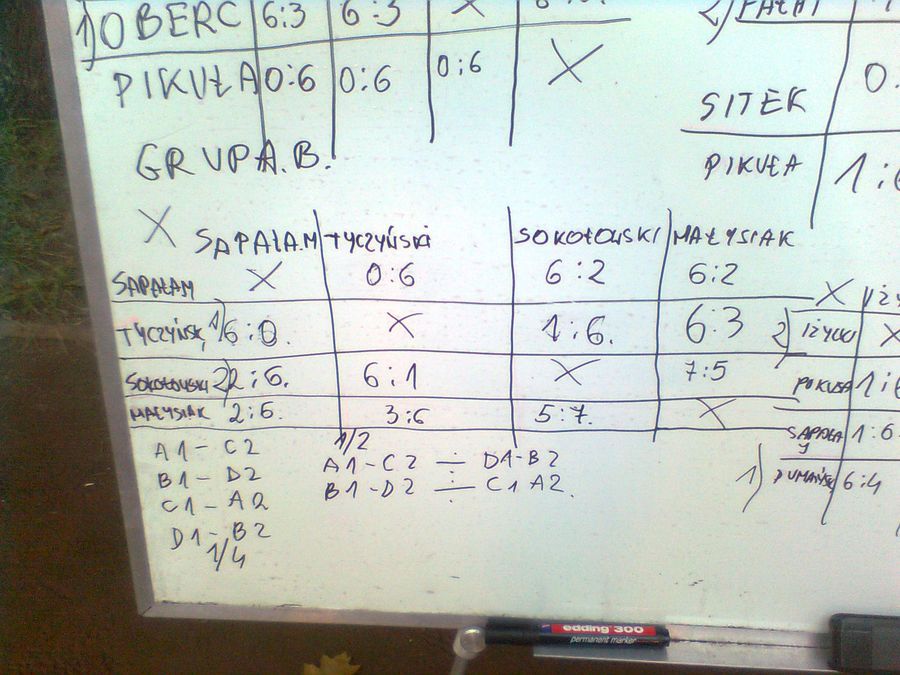 1) OBERC 6:3 6:3 X
PIKUŁA 0:6 0:6 0:6 X
GRUPA.B.
X SAPAŁA.M TYCZYŃSKI SOKOŁOWSKI MAŁYSIAK
SAPAŁAM X 0:6 6:2 6:2
TYCZYŃSKI 1) 6:0. X 1:6. 6:3
SOKOŁOWSKI 2) 2:6. 6:1 X 7:5
MAŁYSIAK 2:6. 3:6 5:7. X
A1-C2
B1-D2
C1-A2
D1-B2
1/4
1/2
A1-C2 ÷ D1-B2
B1-D2 ÷ C1 A2.
2) PAŁAT
SITEK 0
PIKUŁA 1:6
X IŻY
2) IŻYCKI X
POKUSA 1:6
SAPAŁA 1:6.
1) DUMAŃSKI 6:4
edding 300
permanent marker